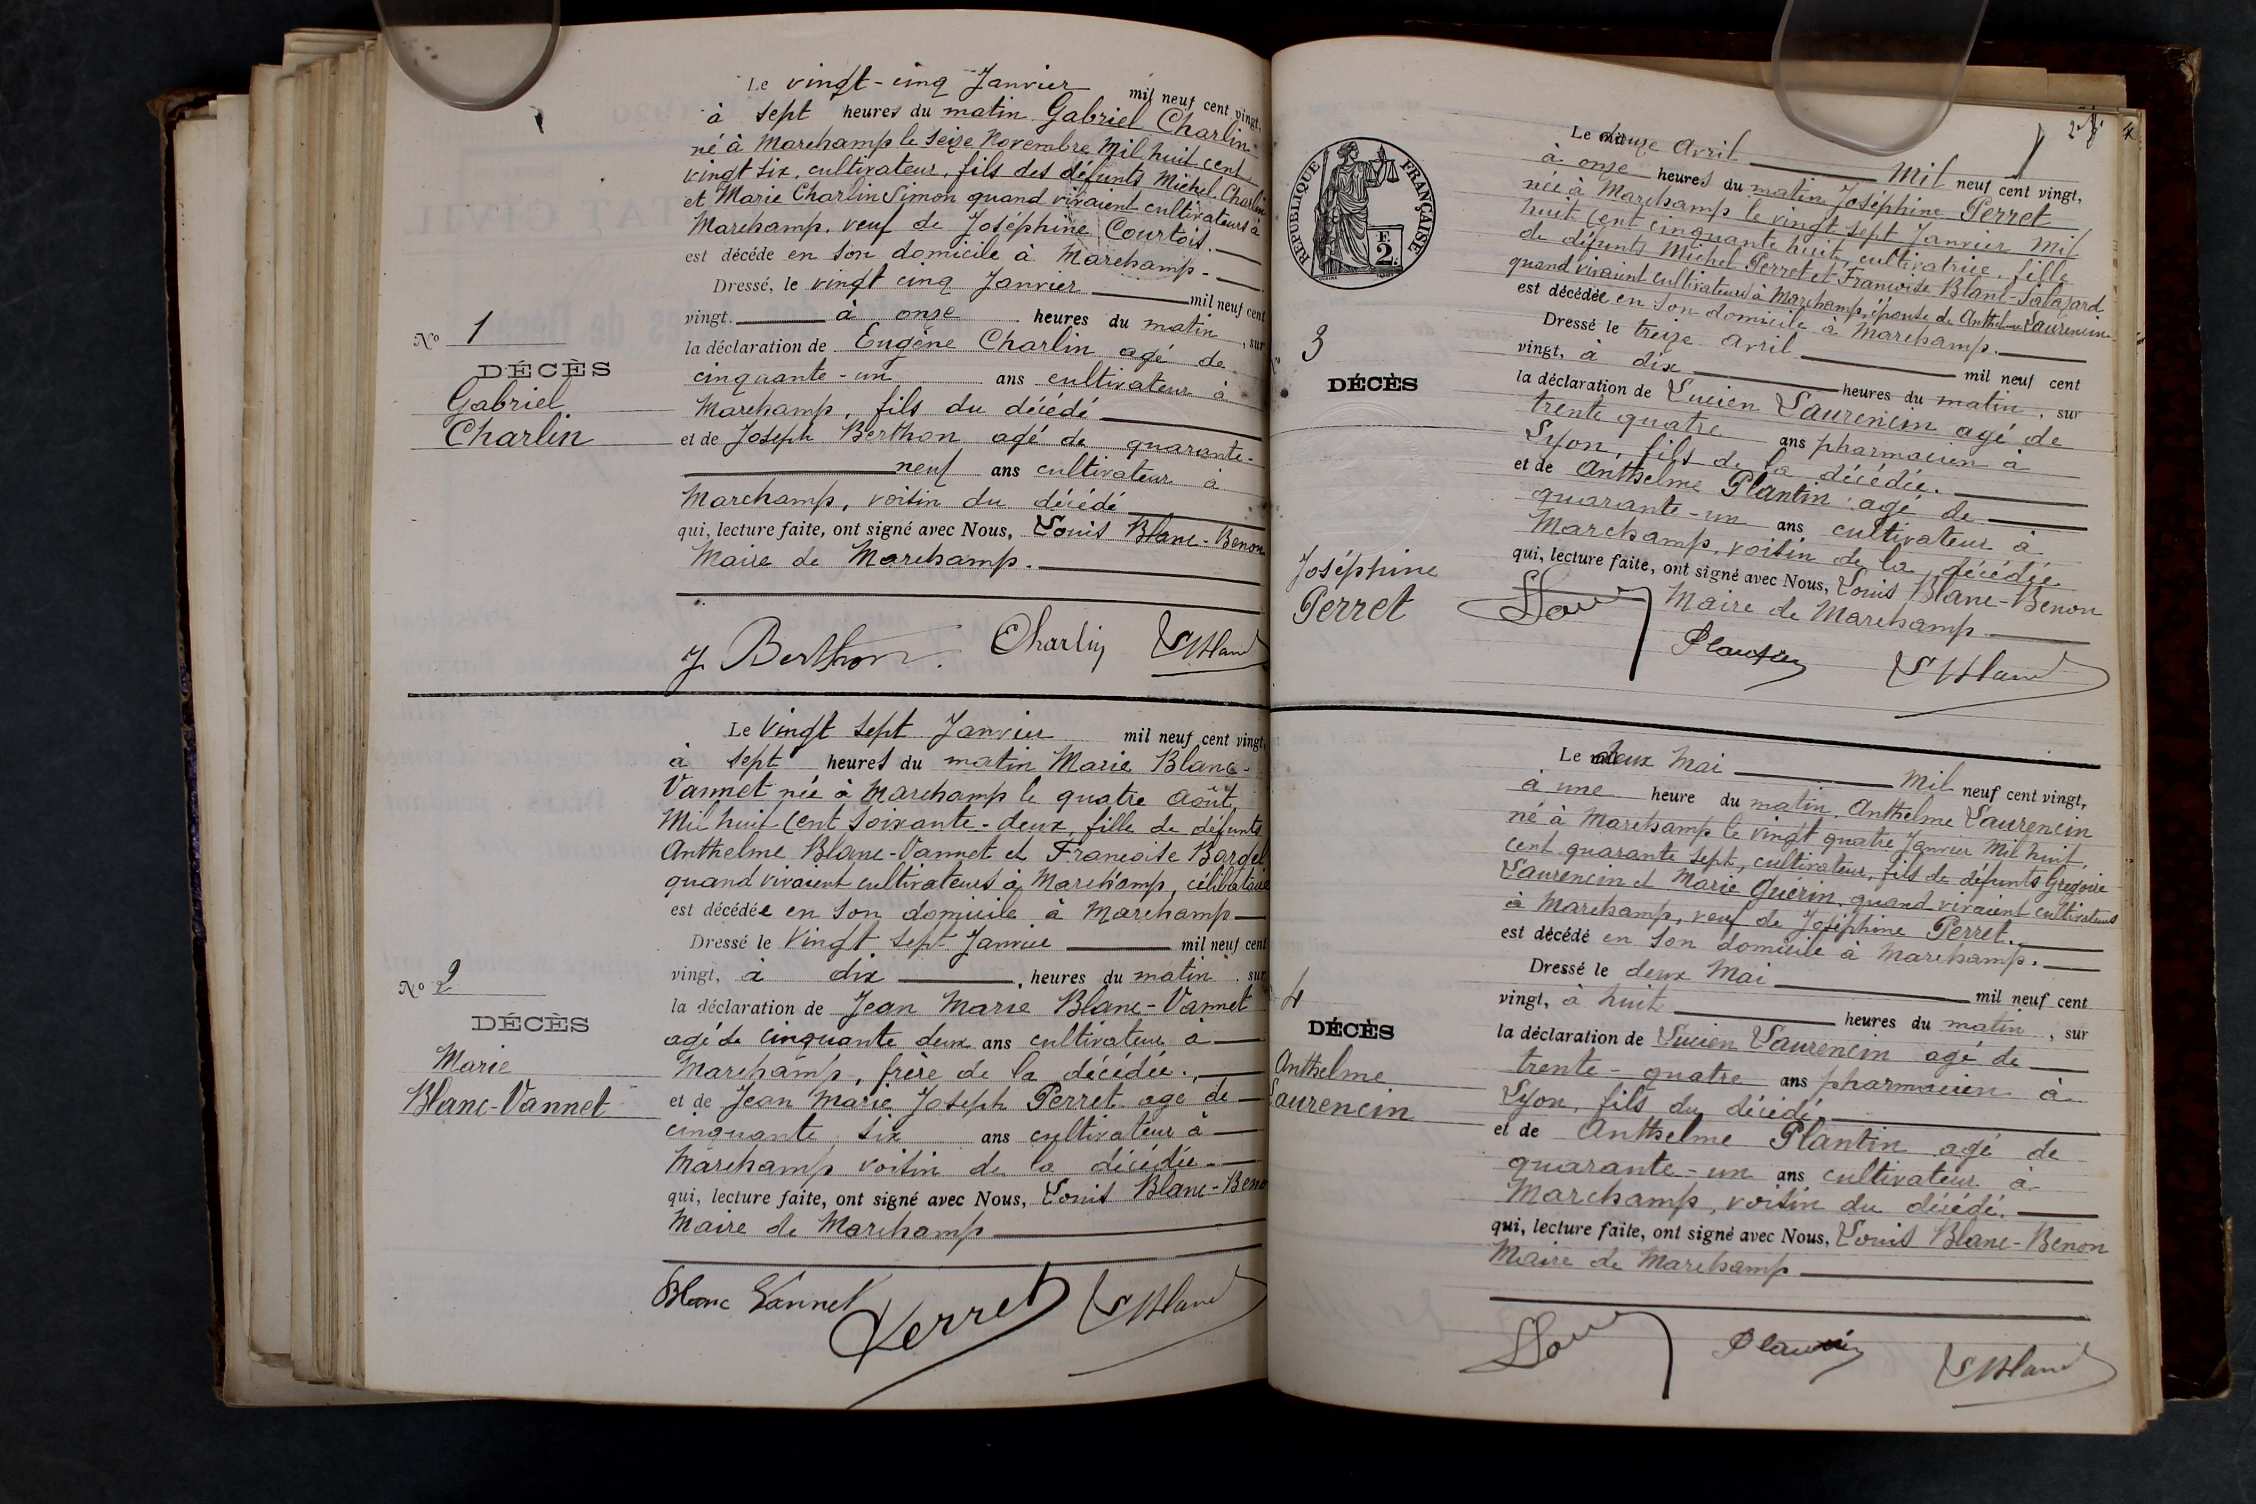 Le vingt-cinq Janvier mil neuf cent vingt,
à sept heures du matin Gabriel Charlin
né à Marchamp le seize Novembre Mil huit cent
vingt six, cultivateur, fils des défunts Michel Charlin
et Marie Charlin Simon quand vivaient cultivateurs à
Marchamp, veuf de Joséphine Courtois.
est décédé en son domicile à Marchamp.
Dressé, le vingt cinq Janvier mil neuf cent
vingt. à onze heures du matin, sur
la déclaration de Eugène Charlin agé de
cinquante-un ans cultivateur à
Marchamp, fils du décédé
et de Joseph Berthon agé de quarante-
neuf ans cultivateur à
Marchamp, voisin du décédé
qui, lecture faite, ont signé avec Nous, Louis Blanc-Benon
Maire de Marchamp.
No 1
DÉCÈS
Gabriel
Charlin
J Berthon. Charlin LBlanc
Le Vingt sept Janvier mil neuf cent vingt,
à sept heures du matin Marie Blanc-
Vannet née à Marchamp le quatre Août,
Mil huit cent soixante-deux, fille de défunts
Anthelme Blanc-Vannet et Francoise Bardel
quand vivaient cultivateurs à Marchamp, célibataire
est décédée en son domicile à Marchamp
Dressé le Vingt sept Janvier mil neuf cent
vingt, à dix heures du matin, sur
la déclaration de Jean Marie Blanc-Vannet
agé de cinquante deux ans cultivateur à
Marchamp, frère de la décédée.
et de Jean Marie Joseph Perret agé de
cinquante six ans cultivateur à
Marchamp voisin de la décédée.
qui, lecture faite, ont signé avec Nous, Louis Blanc-Beno
Maire de Marchamp
No 2
DÉCÈS
Marie
Blanc-Vannet
Blanc Vannet Perret LBlanc
RÉPUBLIQUE FRANÇAISE
F.
2
Le douze Avril Mil neuf cent vingt,
à onze heures du matin Joséphine Perret
née à Marchamp le vingt sept Janvier Mil
huit cent cinquante huit, cultivatrice, fille
de défunts Michel Perret et Francoise Blanc-Jalazard
quand vivaient cultivateurs à Marchamp, épouse de Anthelme Laurencin
est décédée en son domicile à Marchamp.
Dressé le treize avril mil neuf cent
vingt, à dix heures du matin, sur
la déclaration de Lucien Laurencin agé de
trente quatre ans pharmacien à
Lyon, fils de la décédée.
et de Anthelme Plantin agé de
quarante-un ans cultivateur à
Marchamp, voisin de la décédée
qui, lecture faite, ont signé avec Nous, Louis Blanc-Benon
Maire de Marchamp
3
DÉCÈS
Joséphine
Perret
Plantin LBlanc
Le deux Mai Mil neuf cent vingt,
à une heure du matin Anthelme Laurencin
né à Marchamp le vingt quatre Janvier Mil huit
cent quarante sept, cultivateur, fils de défunts Grégoire
Laurencin et Marie Guerin quand vivaient cultivateurs
à Marchamp, veuf de Joséphine Perret.
est décédé en son domicile à Marchamp.
Dressé le deux Mai mil neuf cent
vingt, à huit heures du matin, sur
la déclaration de Lucien Laurencin agé de
trente-quatre ans pharmacien à
Lyon, fils du décédé.
et de Anthelme Plantin agé de
quarante-un ans cultivateur à
Marchamp, voisin du décédé.
qui, lecture faite, ont signé avec Nous, Louis Blanc-Benon
Maire de Marchamp
4
DÉCÈS
Anthelme
Laurencin
Plantin LBlanc